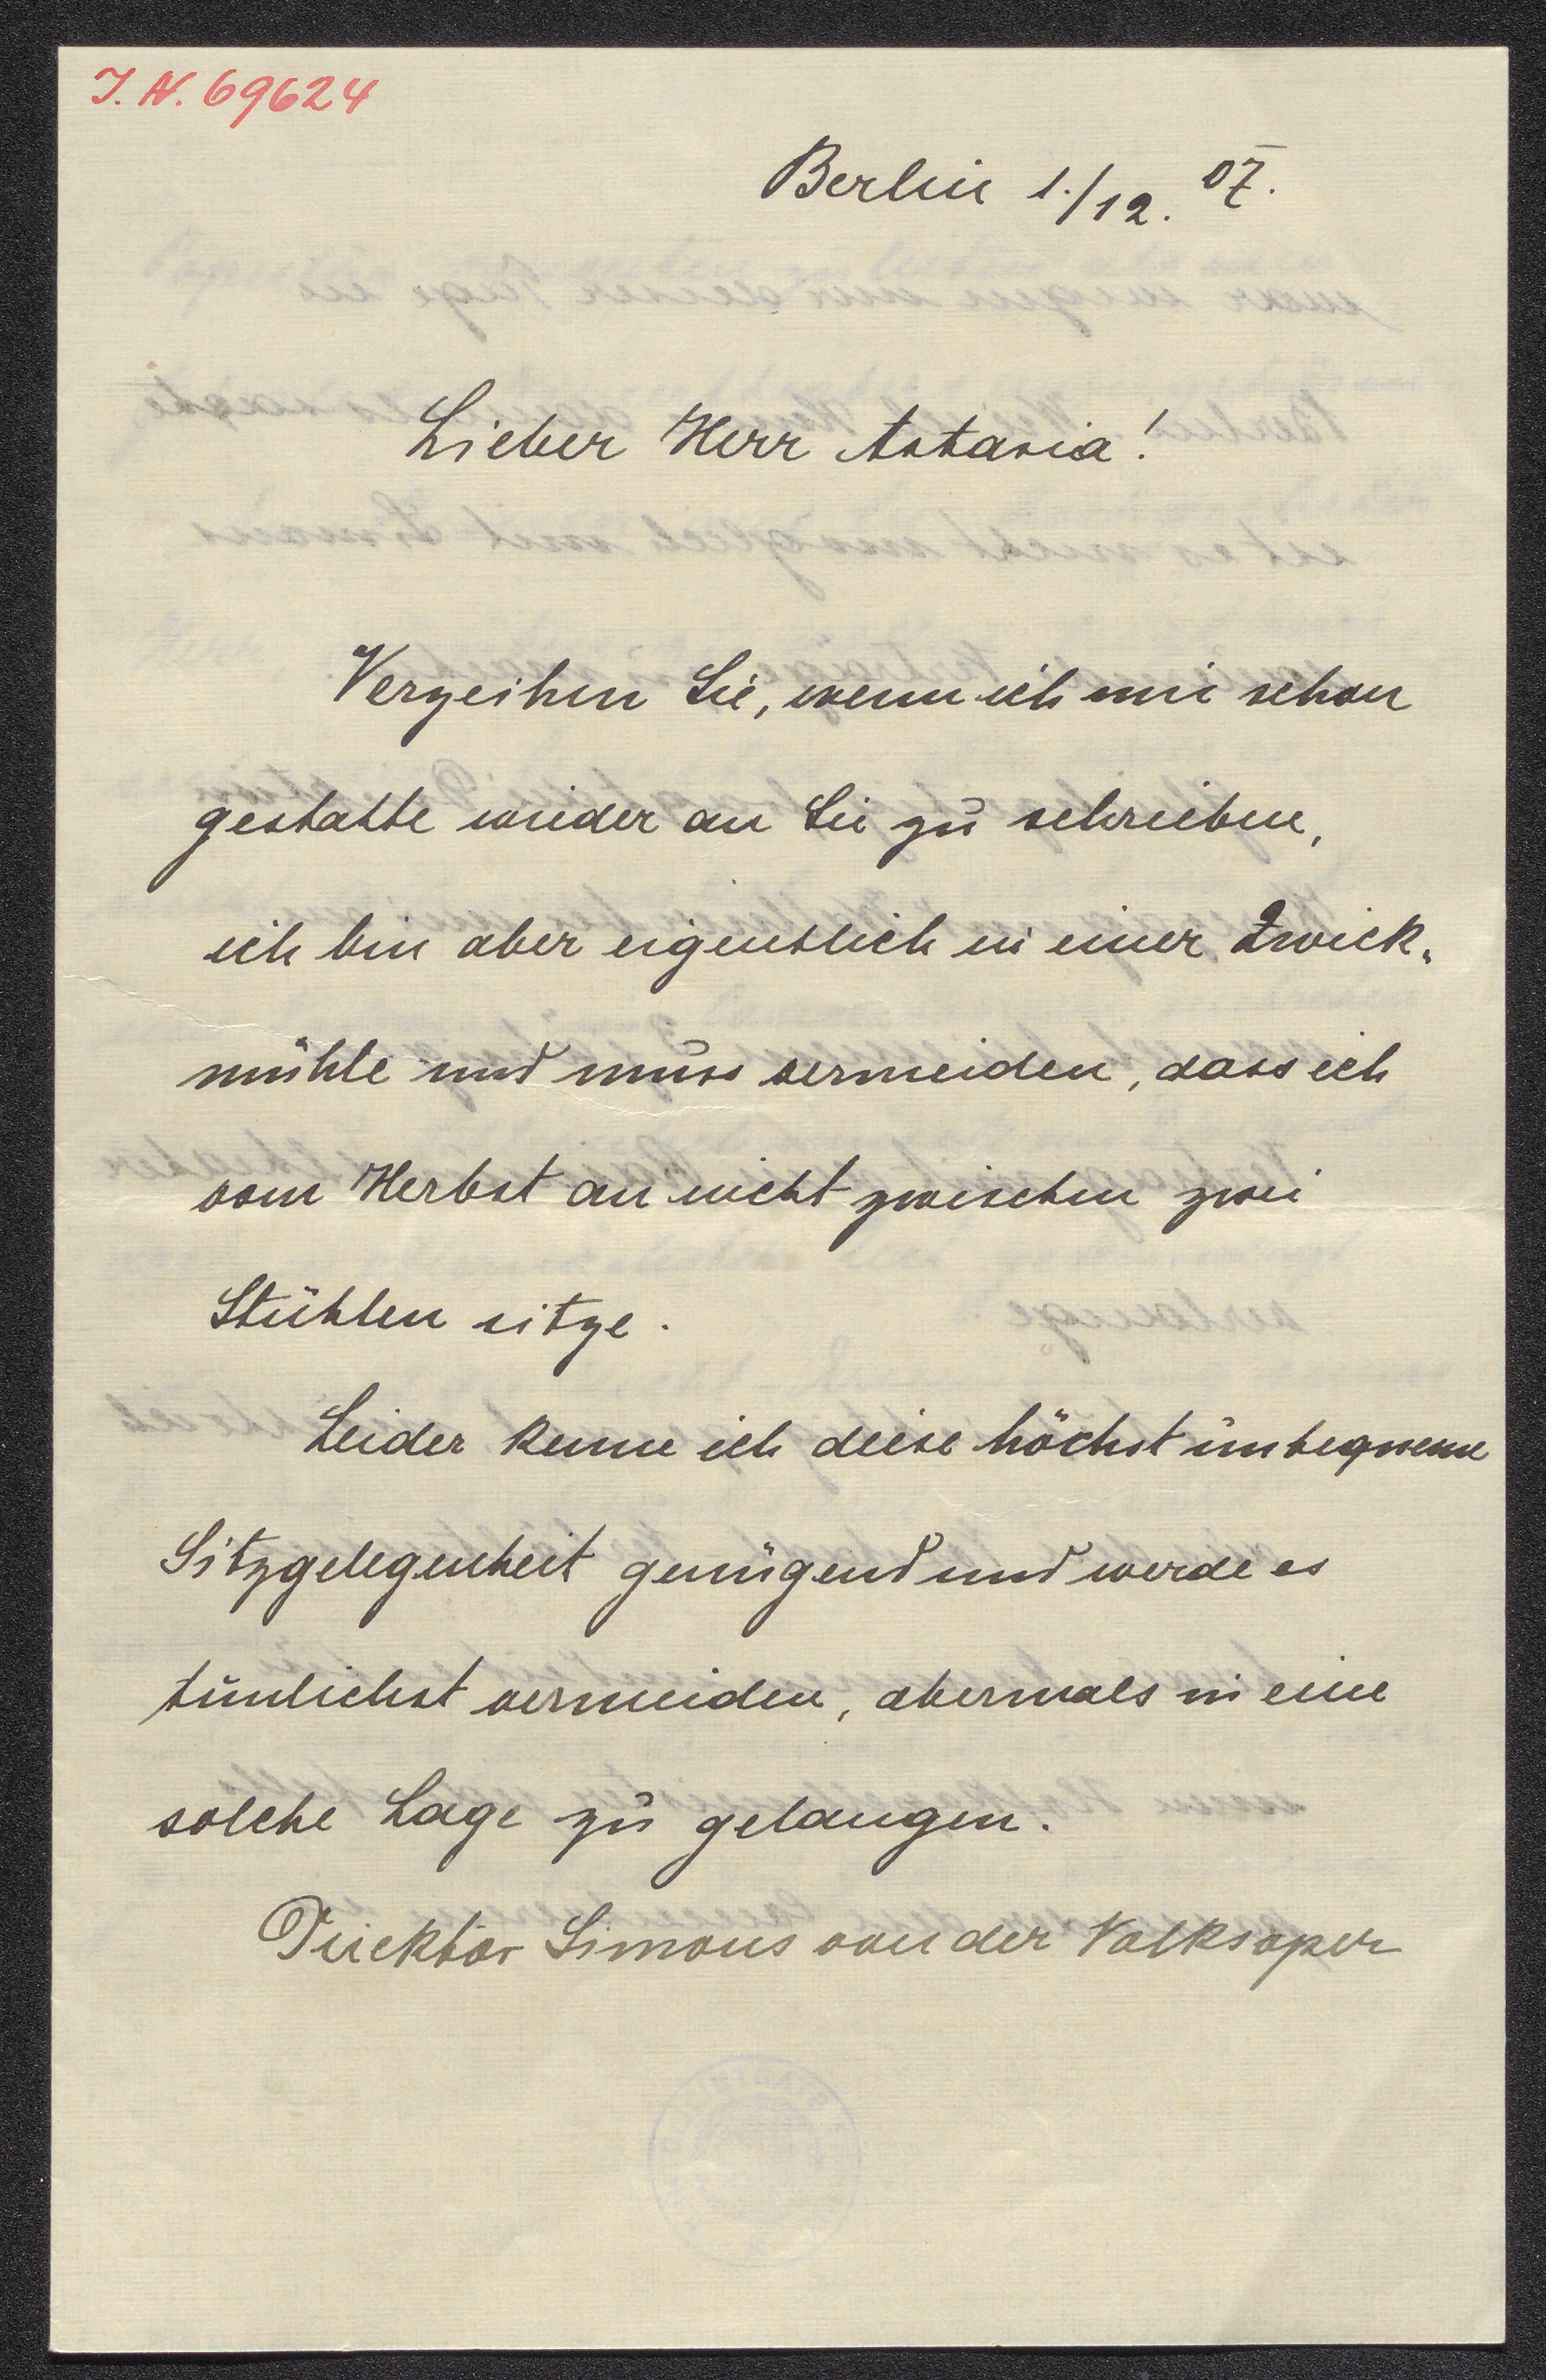 J. N. 69624
Berlin 1./12. 07.
Lieber Herr Astasia!
Verzeihen Sie, wenn ich mir schon
gestatte wieder an Sie zu schreiben,
ich bin aber eigentlich in einer Zwick-
mühle und muss vermeiden, dass ich
vom Herbst an nicht zwischen zwei
Stühlen sitze.
Leider kenne ich diese höchst unbequeme
Sitzgelegenheit genügend und werde es
tunlichst vermeiden, abermals in eine
solche Lage zu gelangen.
Direktor Simons von der Volksoper